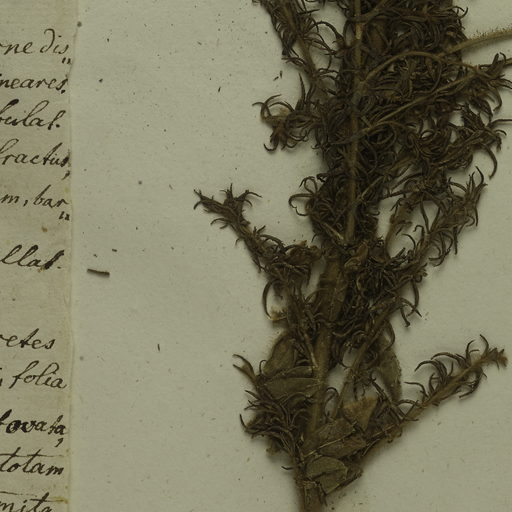 rne dis„
ineares.
bulas.
fractus,
m, bar„
llas.
retes
folia
tovata,
totam
mita